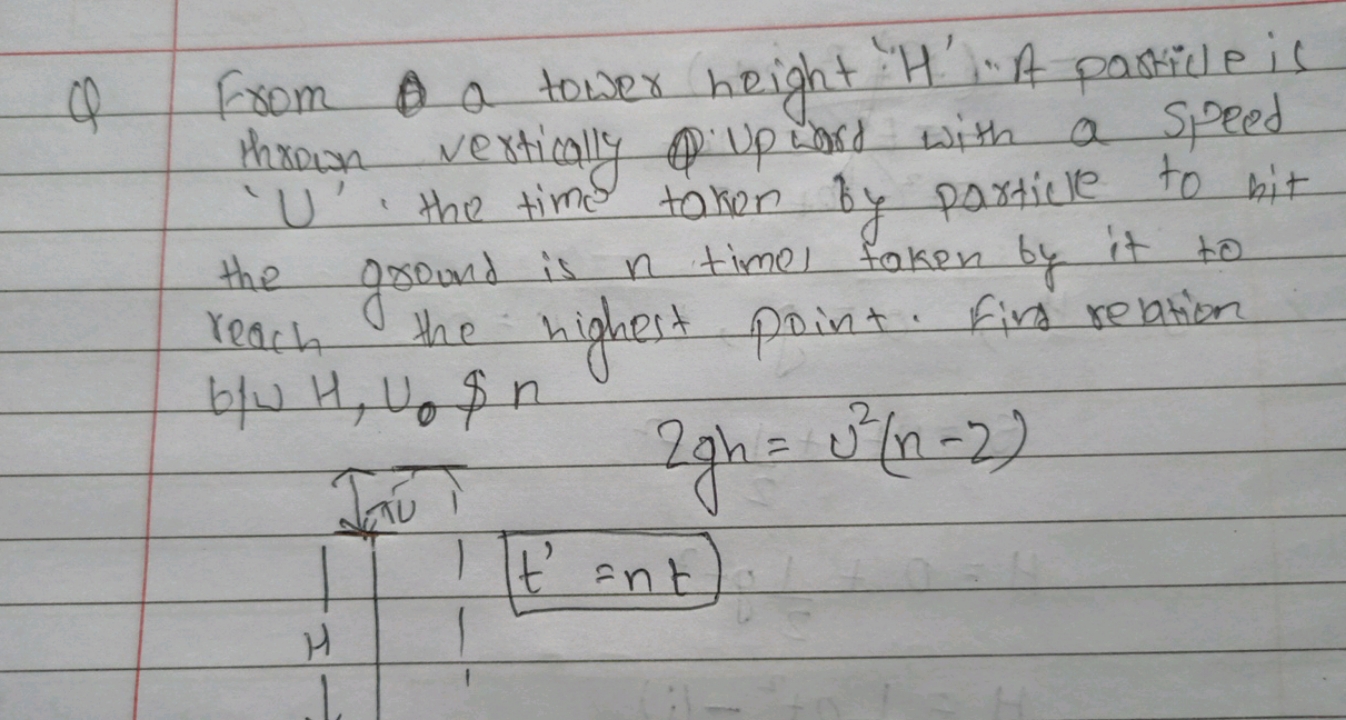 Q From a tower height 'H'. A particle is
thrown vertically upward with a speed
'U'. the times taken by particle to hit
the ground is n times taken by it to
reach the highest point. Find relation
b/w H, U₀ $ n
2gh = U²(n-2)
U
t' = nt
H